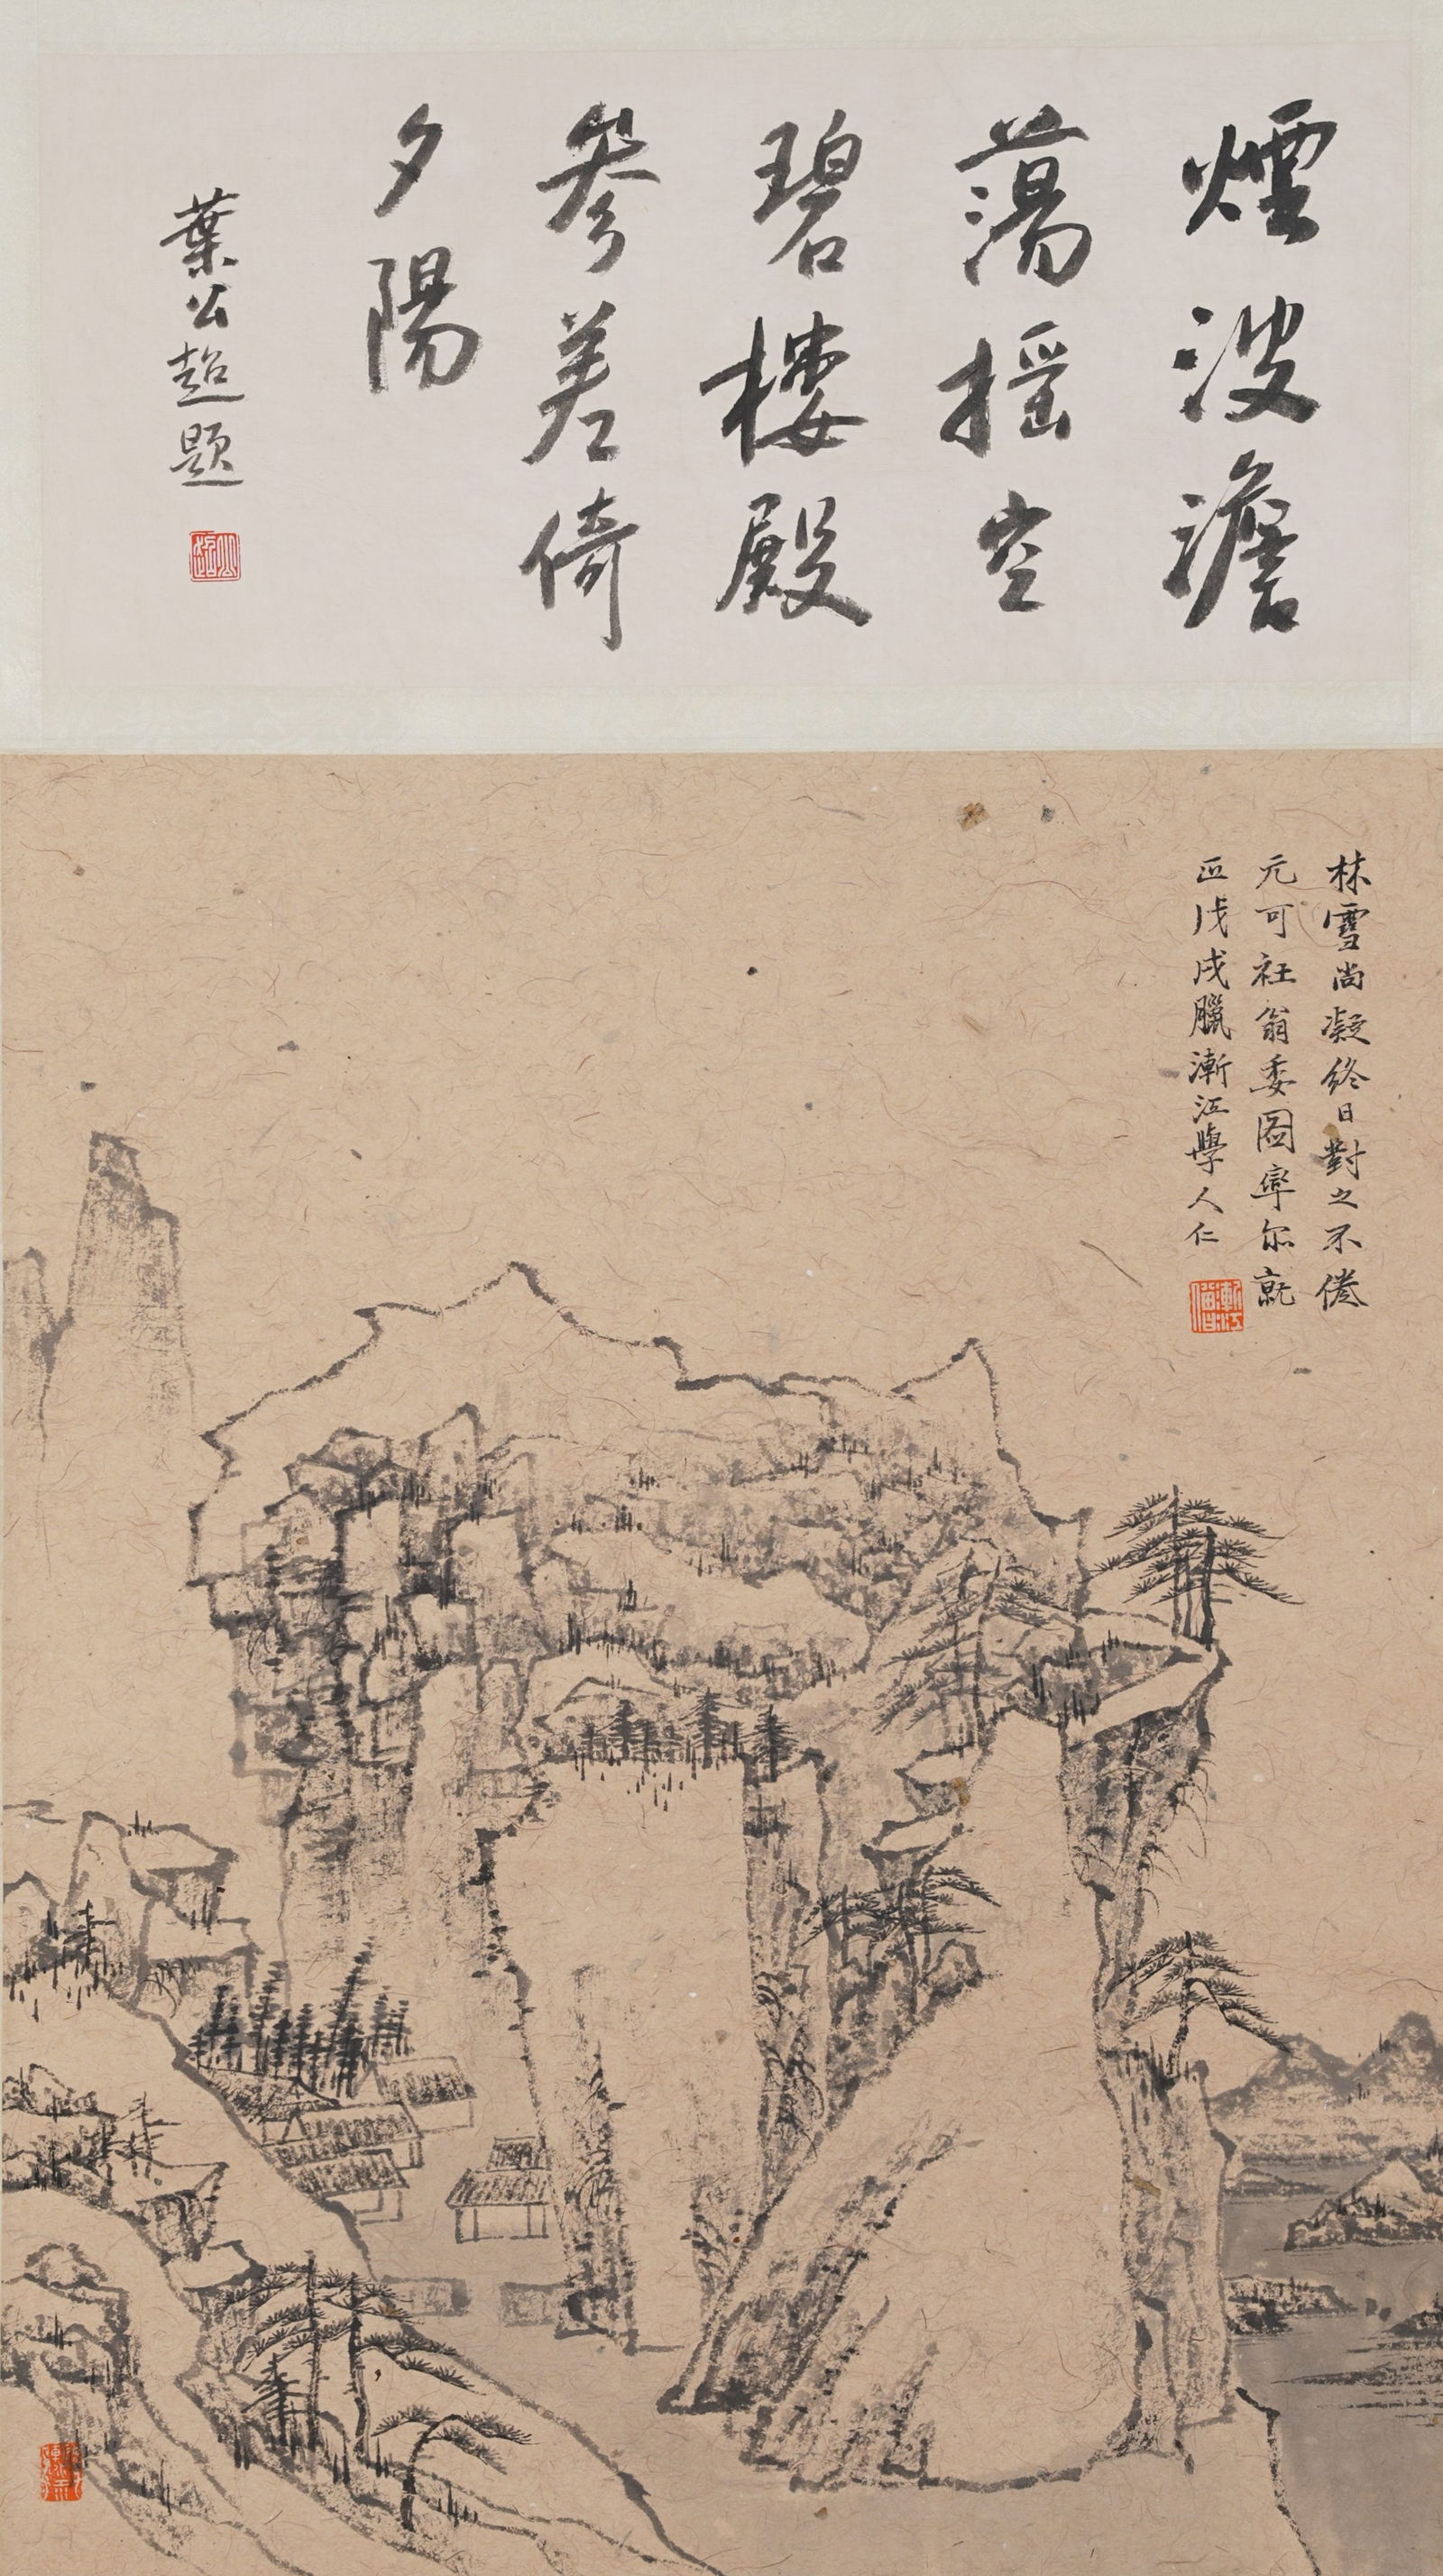 煙波澹
蕩摇空
碧樓殿
參差倚
夕陽
葉公超題
公超
林雪尚凝終日對之不倦
元可社翁委圖率尔就
正戊戌臘漸江學人仁
漸江僧